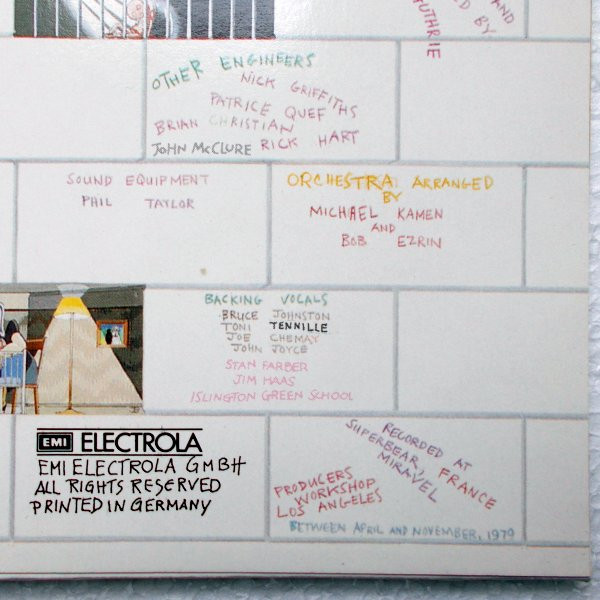 AND
ED BY
GUTHRIE
OTHER ENGINEERS
NICK GRIFFITHS
PATRICE QUEF
BRIAN CHRISTIAN
JOHN McCLURE RICK HART
SOUND EQUIPMENT
PHIL TAYLOR
ORCHESTRA ARRANGED
BY
MICHAEL KAMEN
AND
BOB EZRIN
BACKING VOCALS
BRUCE JOHNSTON
TONI TENNILLE
JOE CHEMAY
JOHN JOYCE
STAN FARBER
JIM HAAS
ISLINGTON GREEN SCHOOL
EMI ELECTROLA
EMI ELECTROLA GMBH
ALL RIGHTS RESERVED
PRINTED IN GERMANY
RECORDED AT
SUPERBEAR, FRANCE
MIRAVEL
PRODUCERS
WORKSHOP
LOS ANGELES
BETWEEN APRIL AND NOVEMBER, 1979